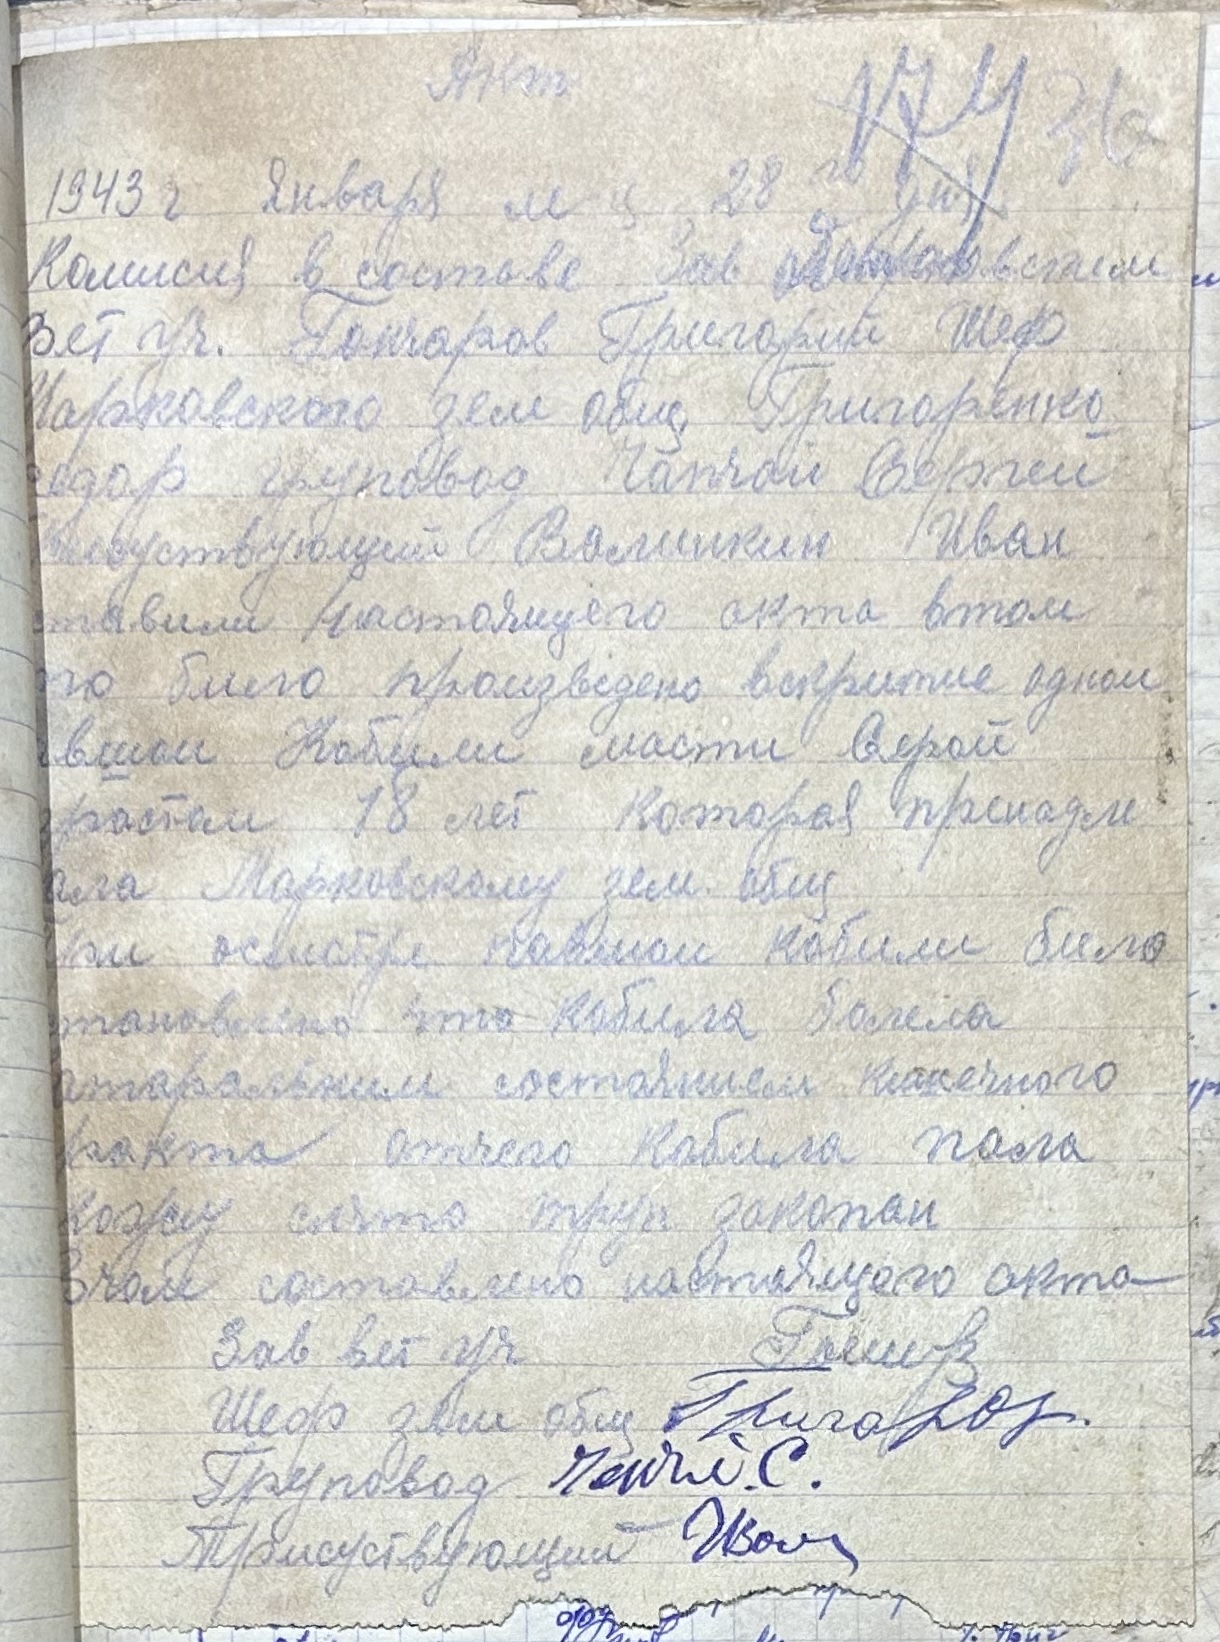 Акт
174 36
1943 г Января м ц 28 го дня
Комисия в составе Зав
Вет уч. Гончаров Григорий Шеф
Марковского зем общ Григоренко
едор груповод Чапчай Сергей
исуствующий Валинкин Иван
ставили настоящего акта втом
то било произведено вскритие одной
авшои Кобили масти Серой
зрастом 18 лет которая пренадле
ала Марковскому зем. общ
При осмотре павшои кобили било
становлено что кобила болела
атаральним состоянием кишечного
тракта отчего кобила пала
кожу снято труп закопан
Вчом составлено настоящого акта
Зав вет уч
Шеф зем общ Григор
Груповод С.
Присуствующий Ивол